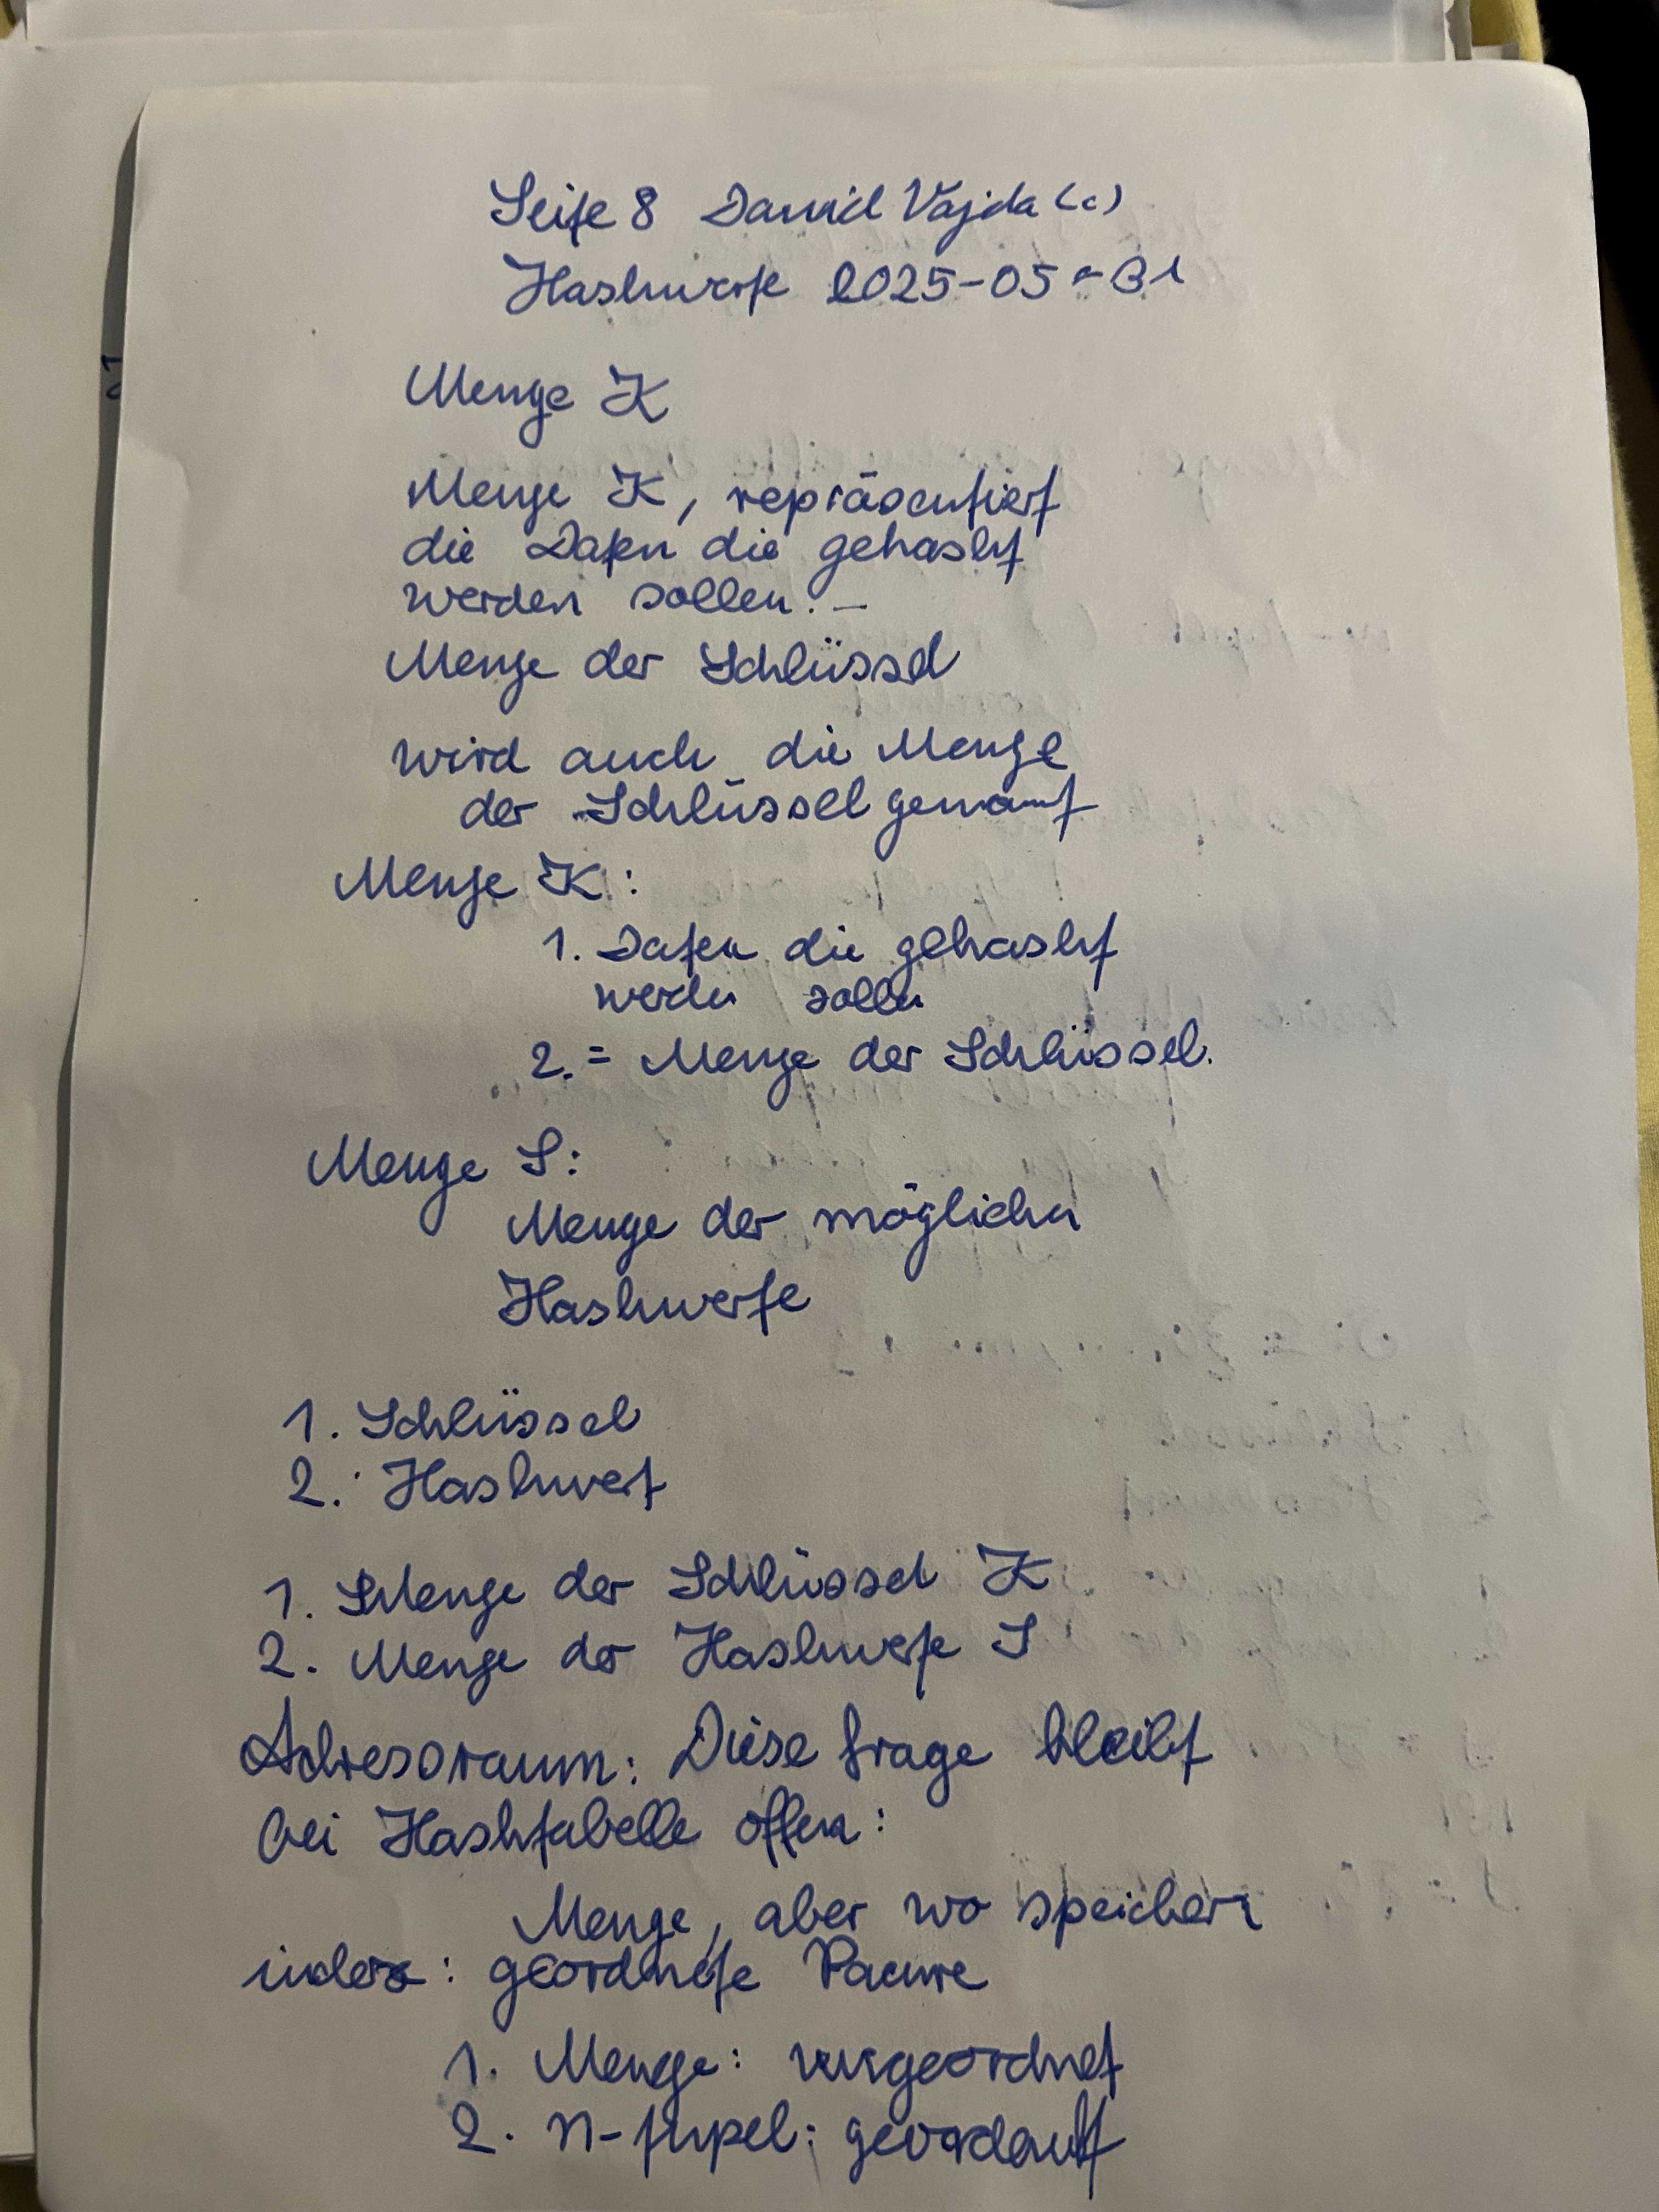 Seite 8 David Vajda (c)
Hashwerte 2025-05-31
Menge K
Menge K, repräsentiert
die Daten die gehasht
werden sollen. –
Menge der Schlüssel
wird auch die Menge
der Schlüssel genannt
Menge K:
1. Daten die gehasht
werden sollen
2. = Menge der Schlüssel.
Menge S:
Menge der möglichen
Hashwerte
1. Schlüssel
2. Hashwert
1. Menge der Schlüssel K
2. Menge der Hashwerte S
Adressraum: Diese Frage bleibt
bei Hashtabelle offen:
Menge, aber wo speichern
index: geordnete Paare
1. Menge: ungeordnet
2. n-tupel: geordnet